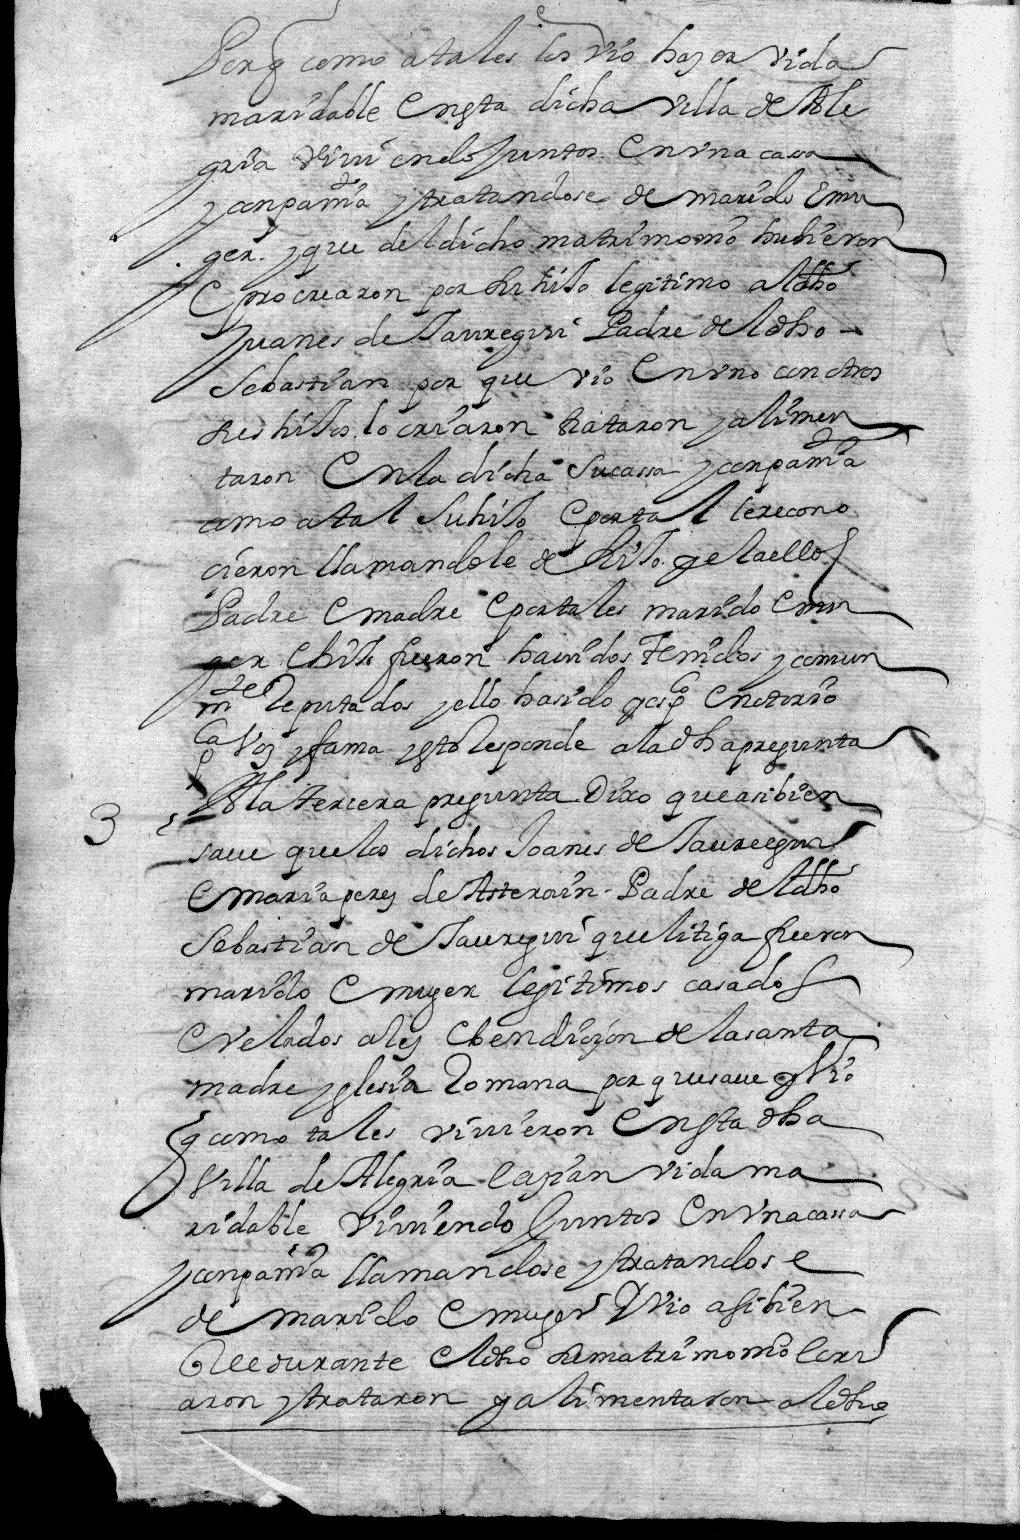 Porq como a tales los vio hazer vida
maridable en esta dicha villa de Ale
gria viuiendo juntos en vna cassa
y conpania y tratandose de marido e mu
ger. y que del dicho matrimonio hubieron
e procrearon por su hijo legitimo al dho
Juanes de Jauregui Padre del dho
Sebastian por que vio en vno con otros
sus hijos lo criaron trataron y alimen
taron en la dicha su cassa y conpania
como a tal su hijo e por tal le recono
cieron llamandole de hijo. y el a ellos
Padre e madre e por tales marido e mu
ger e hijo fueron hauidos tenidos y comun
mte Reputados y ello ha sido y es pco e notorio
pca voz y fama y esto Responde a la dha pregunta
3 A la tercera pregunta Dixo que asi bien
saue que los dichos Joanes de Jauregui
e maria perez de Asterain Padre del dho
Sebastian de Jauregui que litiga fueron
marido e muger legitimos casados
e velados a ley e bendicion de la santa
madre yglesia Romana por que saue y vio
q como tales viuieron en esta dha
Villa de Alegria e acian vida ma
ridable viuiendo juntos en vna cassa
y conpania llamandose y tratandose
de marido e muger Y vio asi bien
Que durante el dho su matrimonio cri
aron y trataron y alimentaron al dho